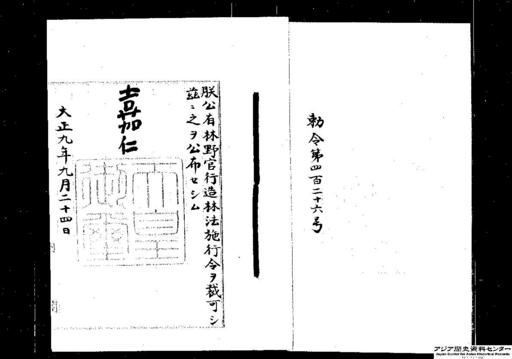 勅令第四百二十六号
朕公有林野官行造林法施行令ヲ裁可シ
茲ニ之ヲ公布セシム
嘉仁
大正九年九月二十四日
アジア歴史資料センター
Japan Center for Asian Historical Records